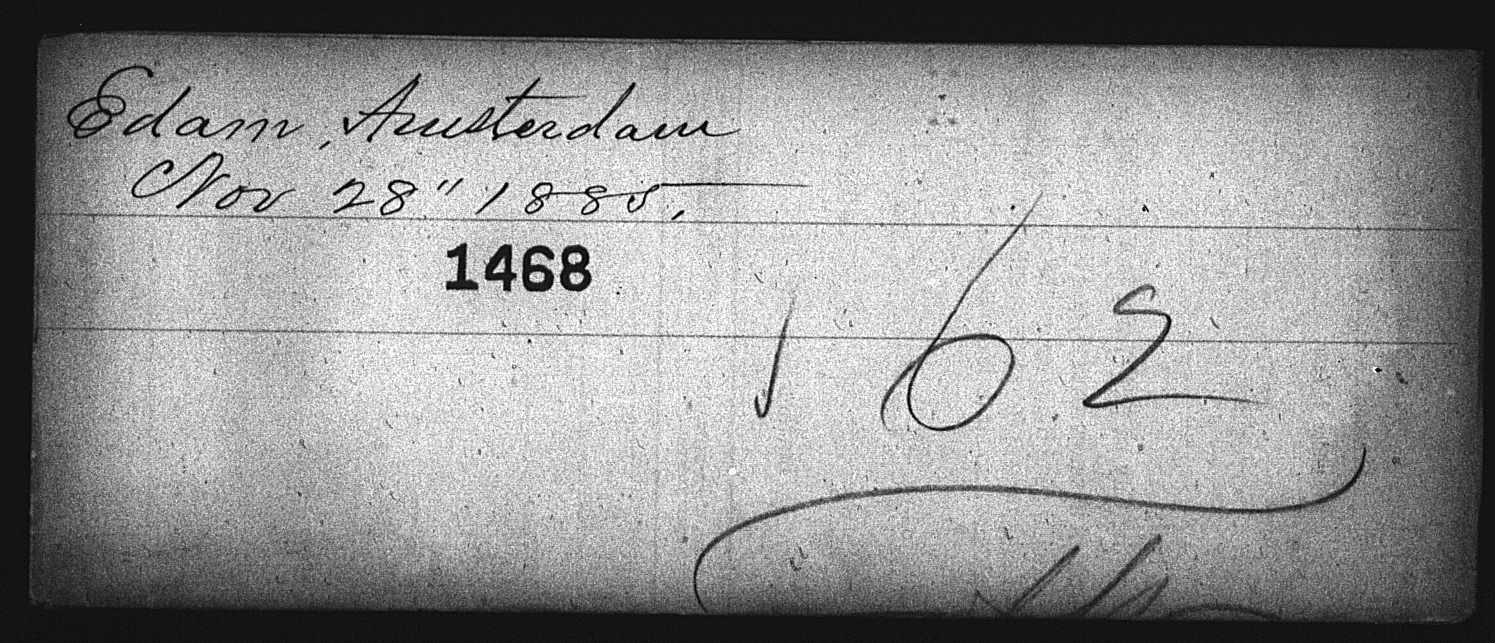 Edam, Amsterdam
Nov 28" 1885.
1468
162